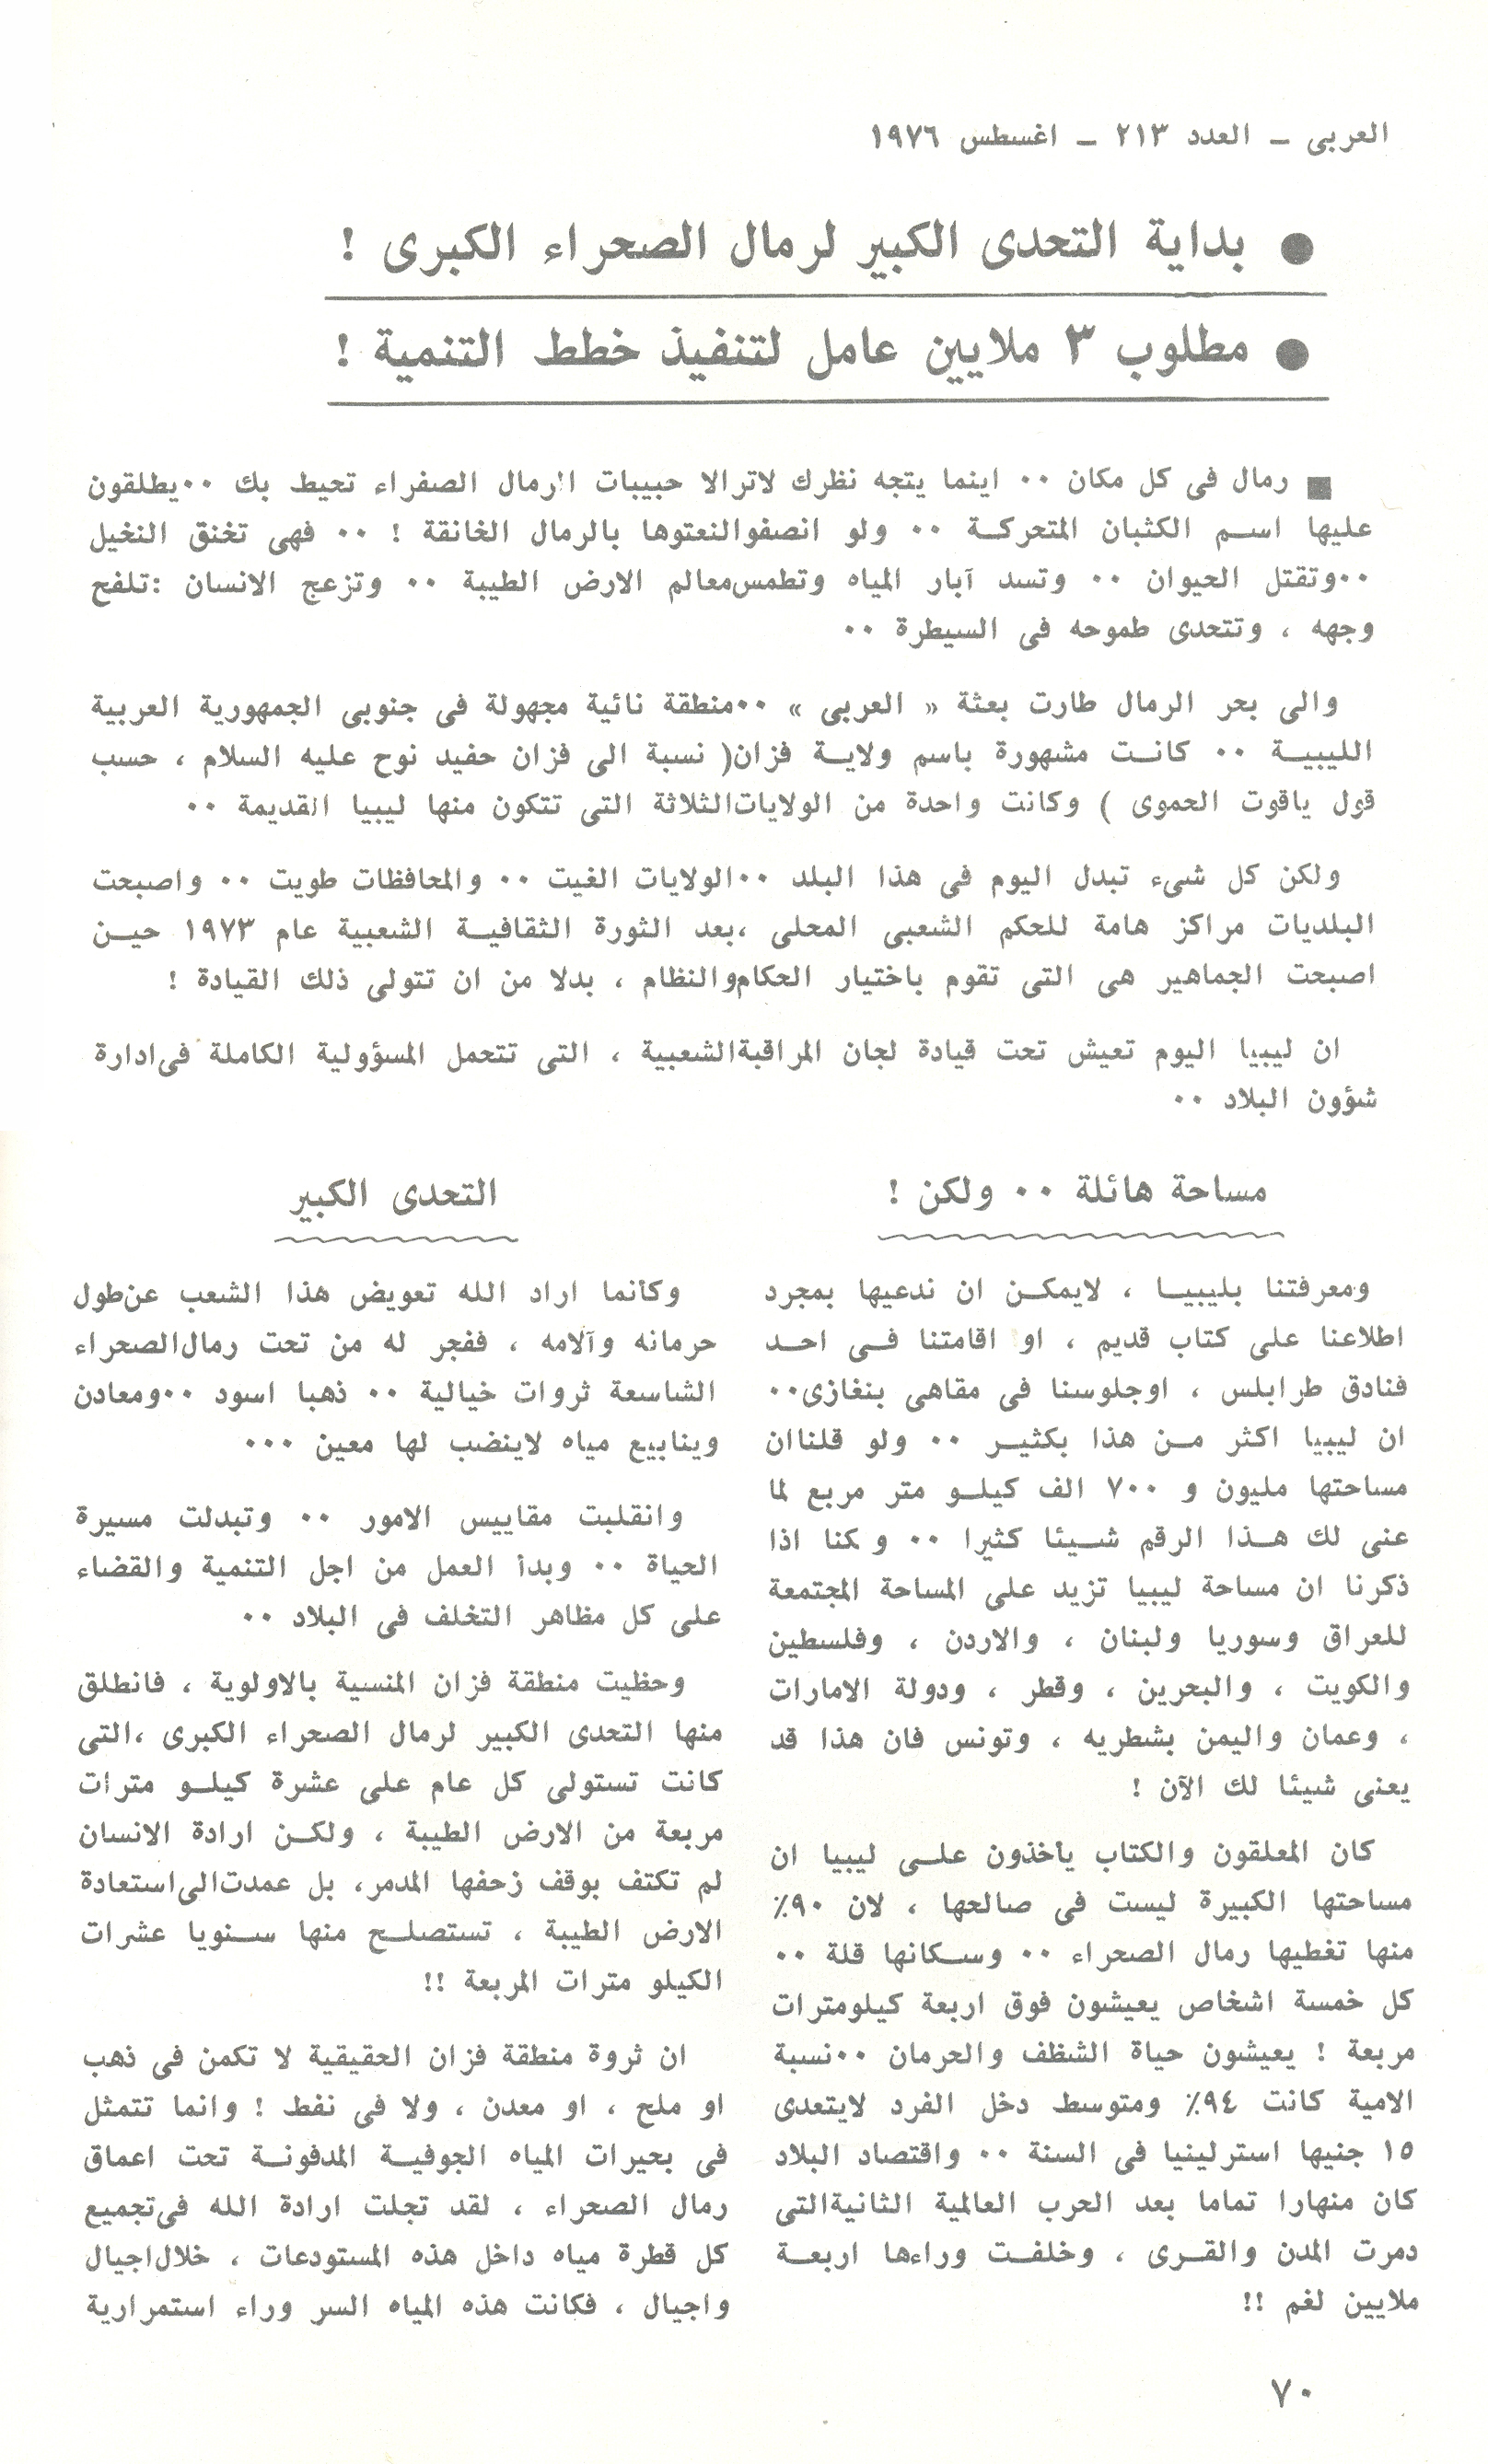 العربى – العدد ٢١٣ – اغسطس ١٩٧٦
● بداية التحدى الكبير لرمال الصحراء الكبرى !
● مطلوب ٣ ملايين عامل لتنفيذ خطط التنمية !
■ رمال فى كل مكان ٠٠ اينما يتجه نظرك لاترالا حبيبات الرمال الصفراء تحيط بك ٠٠يطلقون
عليها اسم الكثبان المتحركة ٠٠ ولو انصفوالنعتوها بالرمال الخانقة ! ٠٠ فهى تخنق النخيل
٠٠وتقتل الحيوان ٠٠ وتسد آبار المياه وتطمس‌معالم الارض الطيبة ٠٠ وتزعج الانسان :تلفح
وجهه ، وتتحدى طموحه فى السيطرة ٠٠
والى بحر الرمال طارت بعثة « العربى » ٠٠منطقة نائية مجهولة فى جنوبى الجمهورية العربية
الليبية ٠٠ كانت مشهورة باسم ولاية فزان( نسبة الى فزان حفيد نوح عليه السلام ، حسب
قول ياقوت الحموى ) وكانت واحدة من الولايات‌الثلاثة التى تتكون منها ليبيا القديمة ٠٠
ولكن كل شىء تبدل اليوم فى هذا البلد ٠٠الولايات الغيت ٠٠ والمحافظات طويت ٠٠ واصبحت
البلديات مراكز هامة للحكم الشعبى المحلى ،بعد الثورة الثقافية الشعبية عام ١٩٧٣ حين
اصبحت الجماهير هى التى تقوم باختيار الحكام‌والنظام ، بدلا من ان تتولى ذلك القيادة !
ان ليبيا اليوم تعيش تحت قيادة لجان المراقبةالشعبية ، التى تتحمل المسؤولية الكاملة فى‌ادارة
شؤون البلاد ٠٠
مساحة هائلة ٠٠ ولكن !
ومعرفتنا بليبيا ، لايمكن ان ندعيها بمجرد
اطلاعنا على كتاب قديم ، او اقامتنا فى احد
فنادق طرابلس ، اوجلوسنا فى مقاهى بنغازى٠٠
ان ليبيا اكثر من هذا بكثير ٠٠ ولو قلناان
مساحتها مليون و ٧٠٠ الف كيلو متر مربع لما
عنى لك هذا الرقم شيئا كثيرا ٠٠ و كنا اذا
ذكرنا ان مساحة ليبيا تزيد على المساحة المجتمعة
للعراق وسوريا ولبنان ، والاردن ، وفلسطين
والكويت ، والبحرين ، وقطر ، ودولة الامارات
، وعمان واليمن بشطريه ، وتونس فان هذا قد
يعنى شيئا لك الآن !
كان المعلقون والكتاب يأخذون على ليبيا ان
مساحتها الكبيرة ليست فى صالحها ، لان ٩٠٪
منها تغطيها رمال الصحراء ٠٠ وسكانها قلة ٠٠
كل خمسة اشخاص يعيشون فوق اربعة كيلومترات
مربعة ! يعيشون حياة الشظف والحرمان ٠٠نسبة
الامية كانت ٩٤٪ ومتوسط دخل الفرد لايتعدى
١٥ جنيها استرلينيا فى السنة ٠٠ واقتصاد البلاد
كان منهارا تماما بعد الحرب العالمية الثانيةالتى
دمرت المدن والقرى ، وخلفت وراءها اربعة
ملايين لغم !!
التحدى الكبير
وكأنما اراد الله تعويض هذا الشعب عن‌طول
حرمانه وآلامه ، ففجر له من تحت رمال‌الصحراء
الشاسعة ثروات خيالية ٠٠ ذهبا اسود ٠٠ومعادن
وينابيع مياه لاينضب لها معين ٠٠٠
وانقلبت مقاييس الامور ٠٠ وتبدلت مسيرة
الحياة ٠٠ وبدأ العمل من اجل التنمية والقضاء
على كل مظاهر التخلف فى البلاد ٠٠
وحظيت منطقة فزان المنسية بالاولوية ، فانطلق
منها التحدى الكبير لرمال الصحراء الكبرى ،التى
كانت تستولى كل عام على عشرة كيلو مترات
مربعة من الارض الطيبة ، ولكن ارادة الانسان
لم تكتف بوقف زحفها المدمر، بل عمدت‌الى‌استعادة
الارض الطيبة ، تستصلح منها سنويا عشرات
الكيلو مترات المربعة !!
ان ثروة منطقة فزان الحقيقية لا تكمن فى ذهب
او ملح ، او معدن ، ولا فى نفط ! وانما تتمثل
فى بحيرات المياه الجوفية المدفونة تحت اعماق
رمال الصحراء ، لقد تجلت ارادة الله فى‌تجميع
كل قطرة مياه داخل هذه المستودعات ، خلال‌اجيال
واجيال ، فكانت هذه المياه السر وراء استمرارية
٧٠